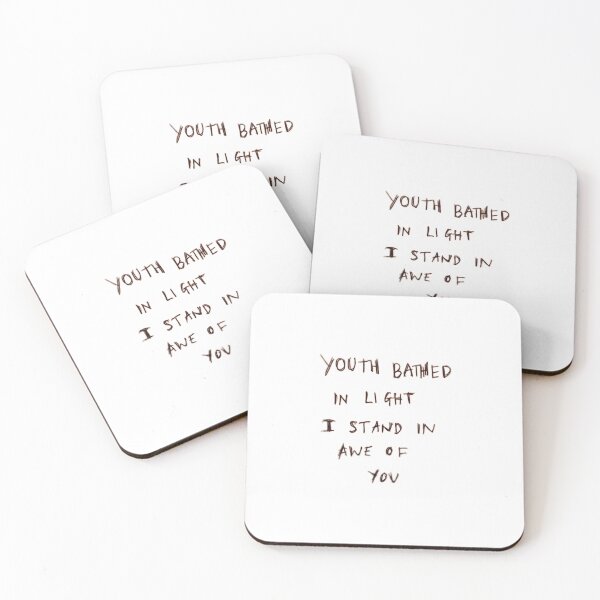 YOUTH BATHED
IN LIGHT
IN
YOUTH BATHED
IN LIGHT
I STAND IN
AWE OF
YOUTH BATHED
IN LIGHT
I STAND IN
AWE OF
YOU
YOUTH BATHED
IN LIGHT
I STAND IN
AWE OF
YOU